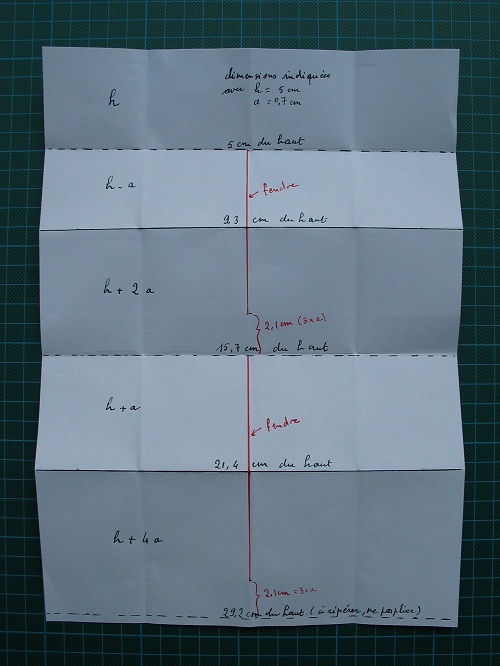 dimensions indiquées
avec h = 5 cm
a = 0,7 cm
h
5 cm du haut
h - a
fendre
9,3 cm du haut
h + 2 a
2,1 cm (3 x a)
15,7 cm du haut
h + a
fendre
21,4 cm du haut
h + 4 a
2,1 cm = 3 x a
29,2 cm du haut. (à repérer, ne pas plier)